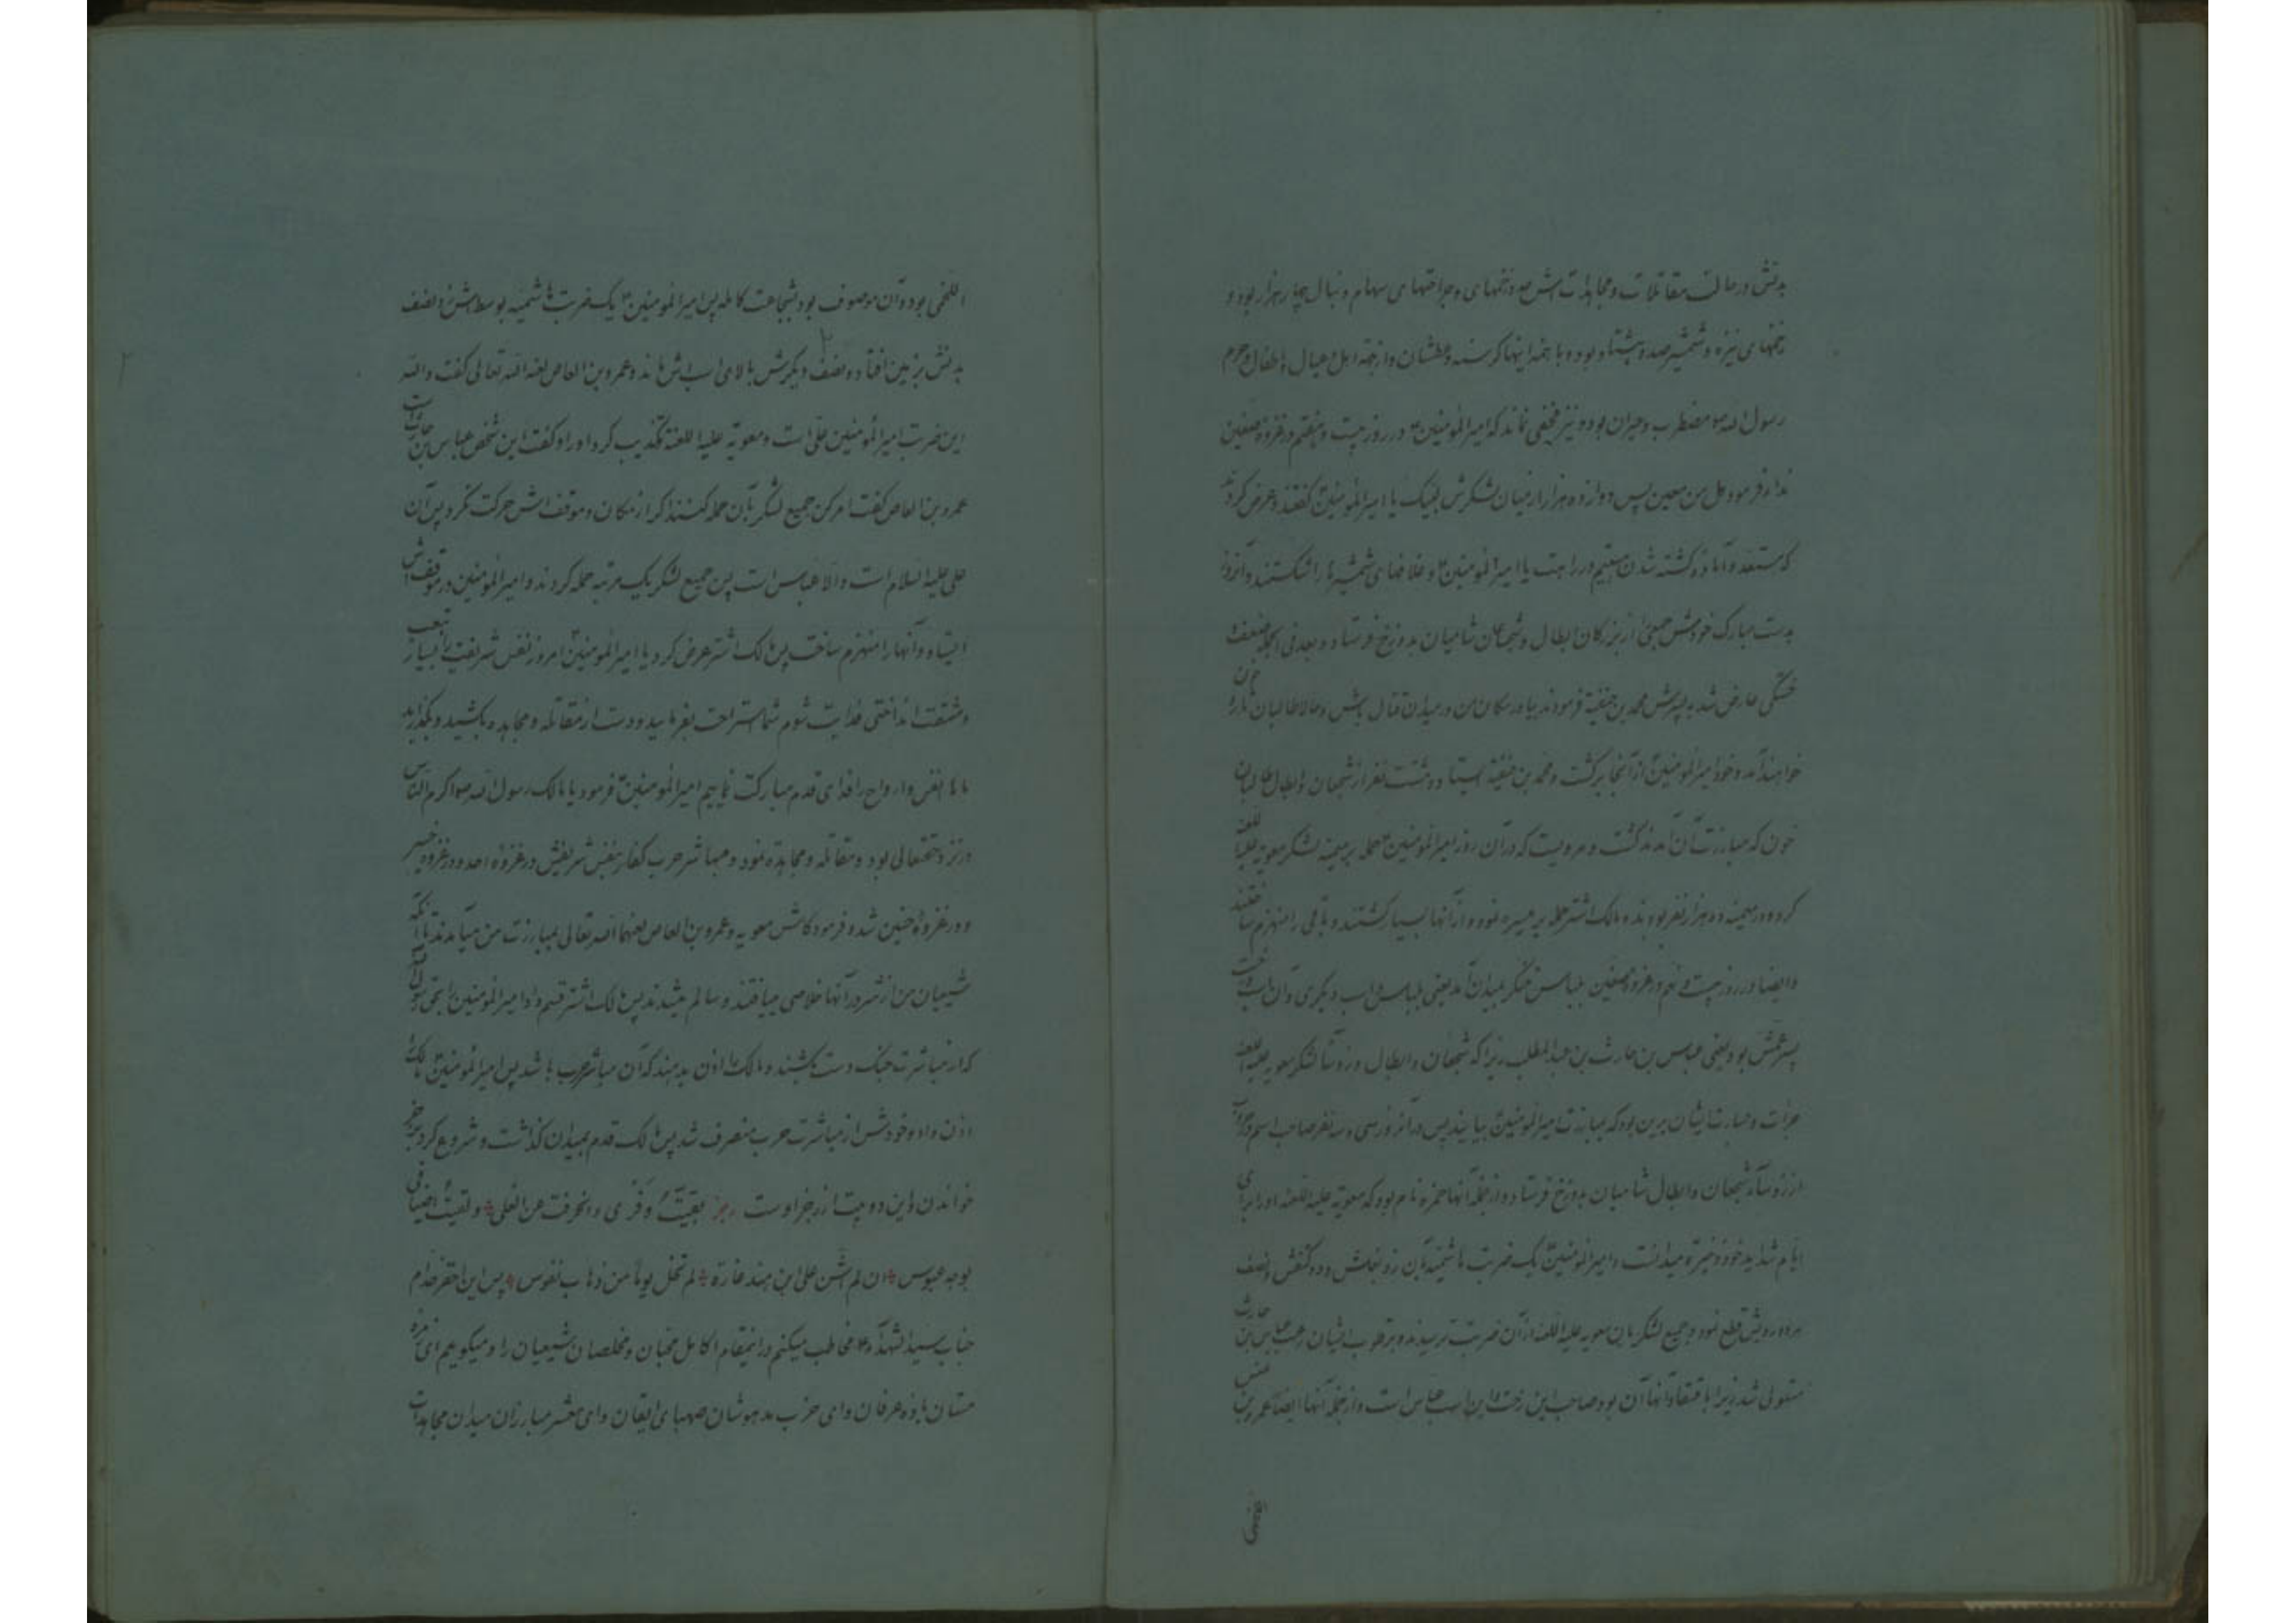 بدنش در حالت مقاتلات و مجاهدات اش صد و زخمهای و جراحتهای سهام و نبال چهار هزار بود و
زخمهای نیزه و شمشیر صد و هشتاد بود و با همه اینها گرسنه و عطشان و از جهة اهل و عیال و اطفال و حرم
رسول الله ص مضطرب و حیران بود و نیز مخفی نماند که امیر المؤمنین ع در روز بیست و هفتم در غزوه صفین
ندا فرمود هل من معین پس دوازده هزار از میان لشکرش لبیک یا امیر المؤمنین گفتند و عرض کردند
که مستعد و آماده کشته شدن هستیم در راهت یا امیر المؤمنین ع و غلافهای شمشیرها را شکستند و آنروز
بدست مبارک خودش جمعی از بزرگان ابطال و شجعان شامیان بدوزخ فرستاد و بعد فی الجمله ضعف و
خستگی عارض شد به پسرش محمد بن حنفیة فرمودند بیا در مکان من در میدان قتال باش و حالا طالبان خون تازه
خواهند آمد و خود امیر المؤمنین از آنجا برگشت و محمد بن حنفیة ایستاد و هشت نفر از شجعان و ابطال طالبان
خون که مبارزت آن آمدند کشت و مرویست که در آن روز امیر المؤمنین ع حمله بر میمنه لشکر معویه علیه اللعنه
کرد و در میمنه ده هزار نفر بودند و مالک اشتر حمله بر میسره نمود و از آنها بسیار کشتند و باقی را منهزم ساختند
و ایضا در روز بیست و نهم در غزوه صفین بلباس دیگر بمیدان آمد یعنی بلباس و اسب دیگری و آن اسب و رخت
پسر عمش بود یعنی عباس بن حارث بن عبد المطلب زیرا که شجعان و ابطال و رؤسا لشکر معویه علیه اللعنه
جرأت و جسارت ایشان برین نبود که مبارزت امیر المؤمنین بیایند پس در آنروز سی و سه نفر صاحب اسم و
از رؤساء شجعان و ابطال شامیان بدوزخ فرستاد و از جمله آنها حمزه نام بود که معویة علیه اللعنه او را برای
ایام شداید خود ذخیره میدانست و امیر المؤمنین ع یک ضربت هاشمیه بآن زد و کتفش و نصف
سر و رویش قطع نمود و جمیع لشکریان معویه علیه اللعنه از آن ضربت ترسیدند و بر قلوب ایشان رعب عباس بن حارث
مستولی شد زیرا باعتقاد آنها آن بود صاحب این رخت و این اسب عباس است و از جمله آنها ایضا عمر بن
اللخمی
اللخمی بود و آن موصوف بود بشجاعت کامله پس امیر المؤمنین ع یک ضربت هاشمیه بوسطش زد و نصف
بدنش بزمین افتاد و نصف دیگرش بالای اسبش ماند و عمرو بن العاص لعنه الله تعالی گفت والله
این ضربت امیر المؤمنین علی است و معویة علیه اللعنة تکذیب کرد او را و گفت این شخص عباس بن حارث است
عمرو بن العاص گفت امر کن جمیع لشکر بآن حمله کنند اگر از مکان و موقف اش حرکت نکرد پس آن
علی علیه السلام است و الا عباس است پس جمیع لشکر یک مرتبه حمله کردند و امیر المؤمنین در موقف اش
ایستاد و آنها را منهزم ساخت پس مالک اشتر عرض کرد یا امیر المؤمنین امروز نفس شریفت را بسیار بتعب
و مشقت انداختی فدایت شوم شما استراحت بفرمایید و دست از مقاتله و مجاهده بکشید و بگذارید
تا ما انفس و ارواح را فدای قدم مبارکت نماییم امیر المؤمنین ع فرمود یا مالک رسول الله ص اکرم الناس
در نزد حقتعالی بود و مقاتله و مجاهده نمود و مباشر حرب کفار بنفس شریفش در غزوه احد و در غزوه خیبر
و در غزوه حنین شد و فرمود کاش معویه و عمرو بن العاص لعنهما الله تعالی بمبارزت من میآمدند تا آنکه
شیعیان من از شرور آنها خلاصی مییافتند و سالم میشدند پس مالک اشتر قسم داد امیر المؤمنین را بحق رسول الله
که از مباشرت جنگ دست بکشند و مالک را اذن بدهند که آن مباشر حرب باشد پس امیر المؤمنین ع مالک را
اذن داد و خودش از مباشرت حرب منصرف شد پس مالک قدم بمیدان گذاشت و شروع کرد برجز
خواندن و این دو بیت از رجز اوست رجز بقیت وفری و انحرفت عن العلی و لقیت اضیافی
بوجه عبوس ان لم اشن علی ابن هند غارة لم تخل یوما من ذهاب نفوس پس این احقر خدام
جناب سید الشهدآء ع مخاطب میکنم در اینمقام اکامل محبان و مخلصان شیعیان را و میگویم ای زمره
مستان باده عرفان و ای حزب مدهوشان صهبای ایقان و ای معشر مبارزان میدان مجاهدات